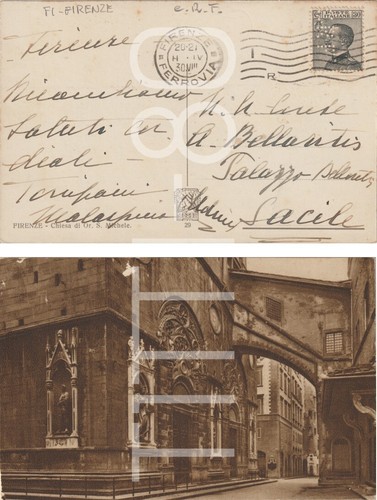 FI-FIRENZE
C.R.F.
Firenze
FIRENZE
20-21
II-IV
30 VIII
FERROVIA
I
R
Ricambiano
Saluti Cor
diali -
Torquati
Malaspina
A. Bellavitis
Palazzo Bellavitis
Udine
Sacile
FIRENZE - Chiesa di Or. S. Michele.
25